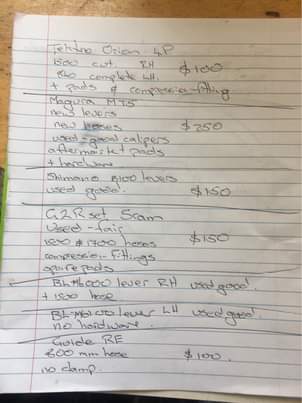 Tektro Orion 4P
1500 cut. RH
840 complete LH. $100
+ pads & compression fitting
Magura MT5
new levers
new hoses $250
used-good calipers
aftermarket pads
+ hardware
Shimano 8100 levers
used good. $150
G2R set Sram
Used - fair
1500 & 1700 hoses $150
compression fittings
spare pads
lever RH used good.
+ 1500 hose
lever LH used good.
no hardware
Guide RE
800 mm hose $100.
no clamp.